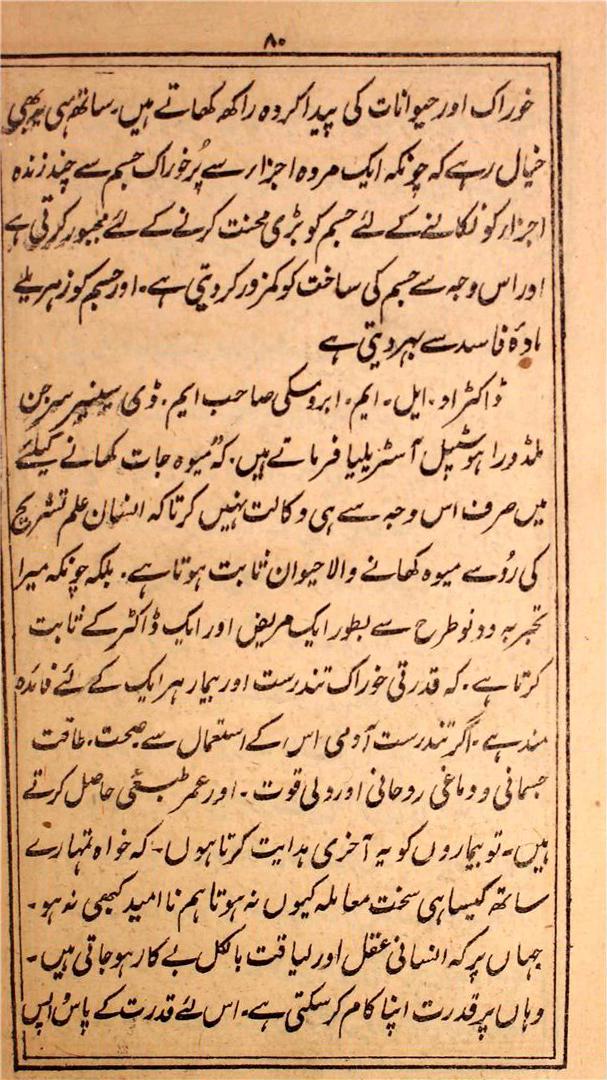 ۸۰
خوراک اور حیوانات کی پیدا کردہ راکھ کھاتے ہیں۔ ساتھ ہی یہ بھی
خیال رہے کہ چونکہ ایک مردہ اجزار سے پُر خوراک جسم سے چند زندہ
اجزار کو نکالنے کے لئے جسم کو بڑی محنت کرنے کے لئے مجبور کرتی ہے
اور اس وجہ سے جسم کی ساخت کو کمزور کر دیتی ہے۔ اور جسم کو زہریلے
مادۂ فاسد سے بہر دیتی ہے
ڈاکٹر او۔ ایل۔ ایم۔ ابروسکی صاحب ایم۔ ڈی سینیر سرجن
ملڈورا ہوسپٹل آسٹریلیا فرماتے ہیں۔ کہ "میوہ جات کھانے کیلئے
میں صرف اس وجہ سے ہی وکالت نہیں کرتا کہ انسان علم تشریح
کی رُو سے میوہ کھانے والا حیوان ثابت ہوتا ہے۔ بلکہ چونکہ میرا
تجربہ دونو طرح سے بطور ایک مریض اور ایک ڈاکٹر کے ثابت
کرتا ہے۔ کہ قدرتی خوراک تندرست اور بیمار ہر ایک کے لئے فائدہ
مند ہے۔ اگر تندرست آدمی اس کے استعمال سے صحت۔ طاقت
جسمانی و دماغی روحانی اور دلی قوت۔ اور عمر طبعی حاصل کرتے
ہیں۔ تو بیماروں کو یہ آخری ہدایت کرتا ہوں۔ کہ خواہ تمہارے
ساتھ کیسا ہی سخت معاملہ کیوں نہ ہو تاہم نا امید کبھی نہ ہو۔
جہاں پر کہ انسانی عقل اور لیاقت بالکل بے کار ہو جاتی ہیں۔
وہاں پر قدرت اپنا کام کر سکتی ہے۔ اس لئے قدرت کے پاس واپس